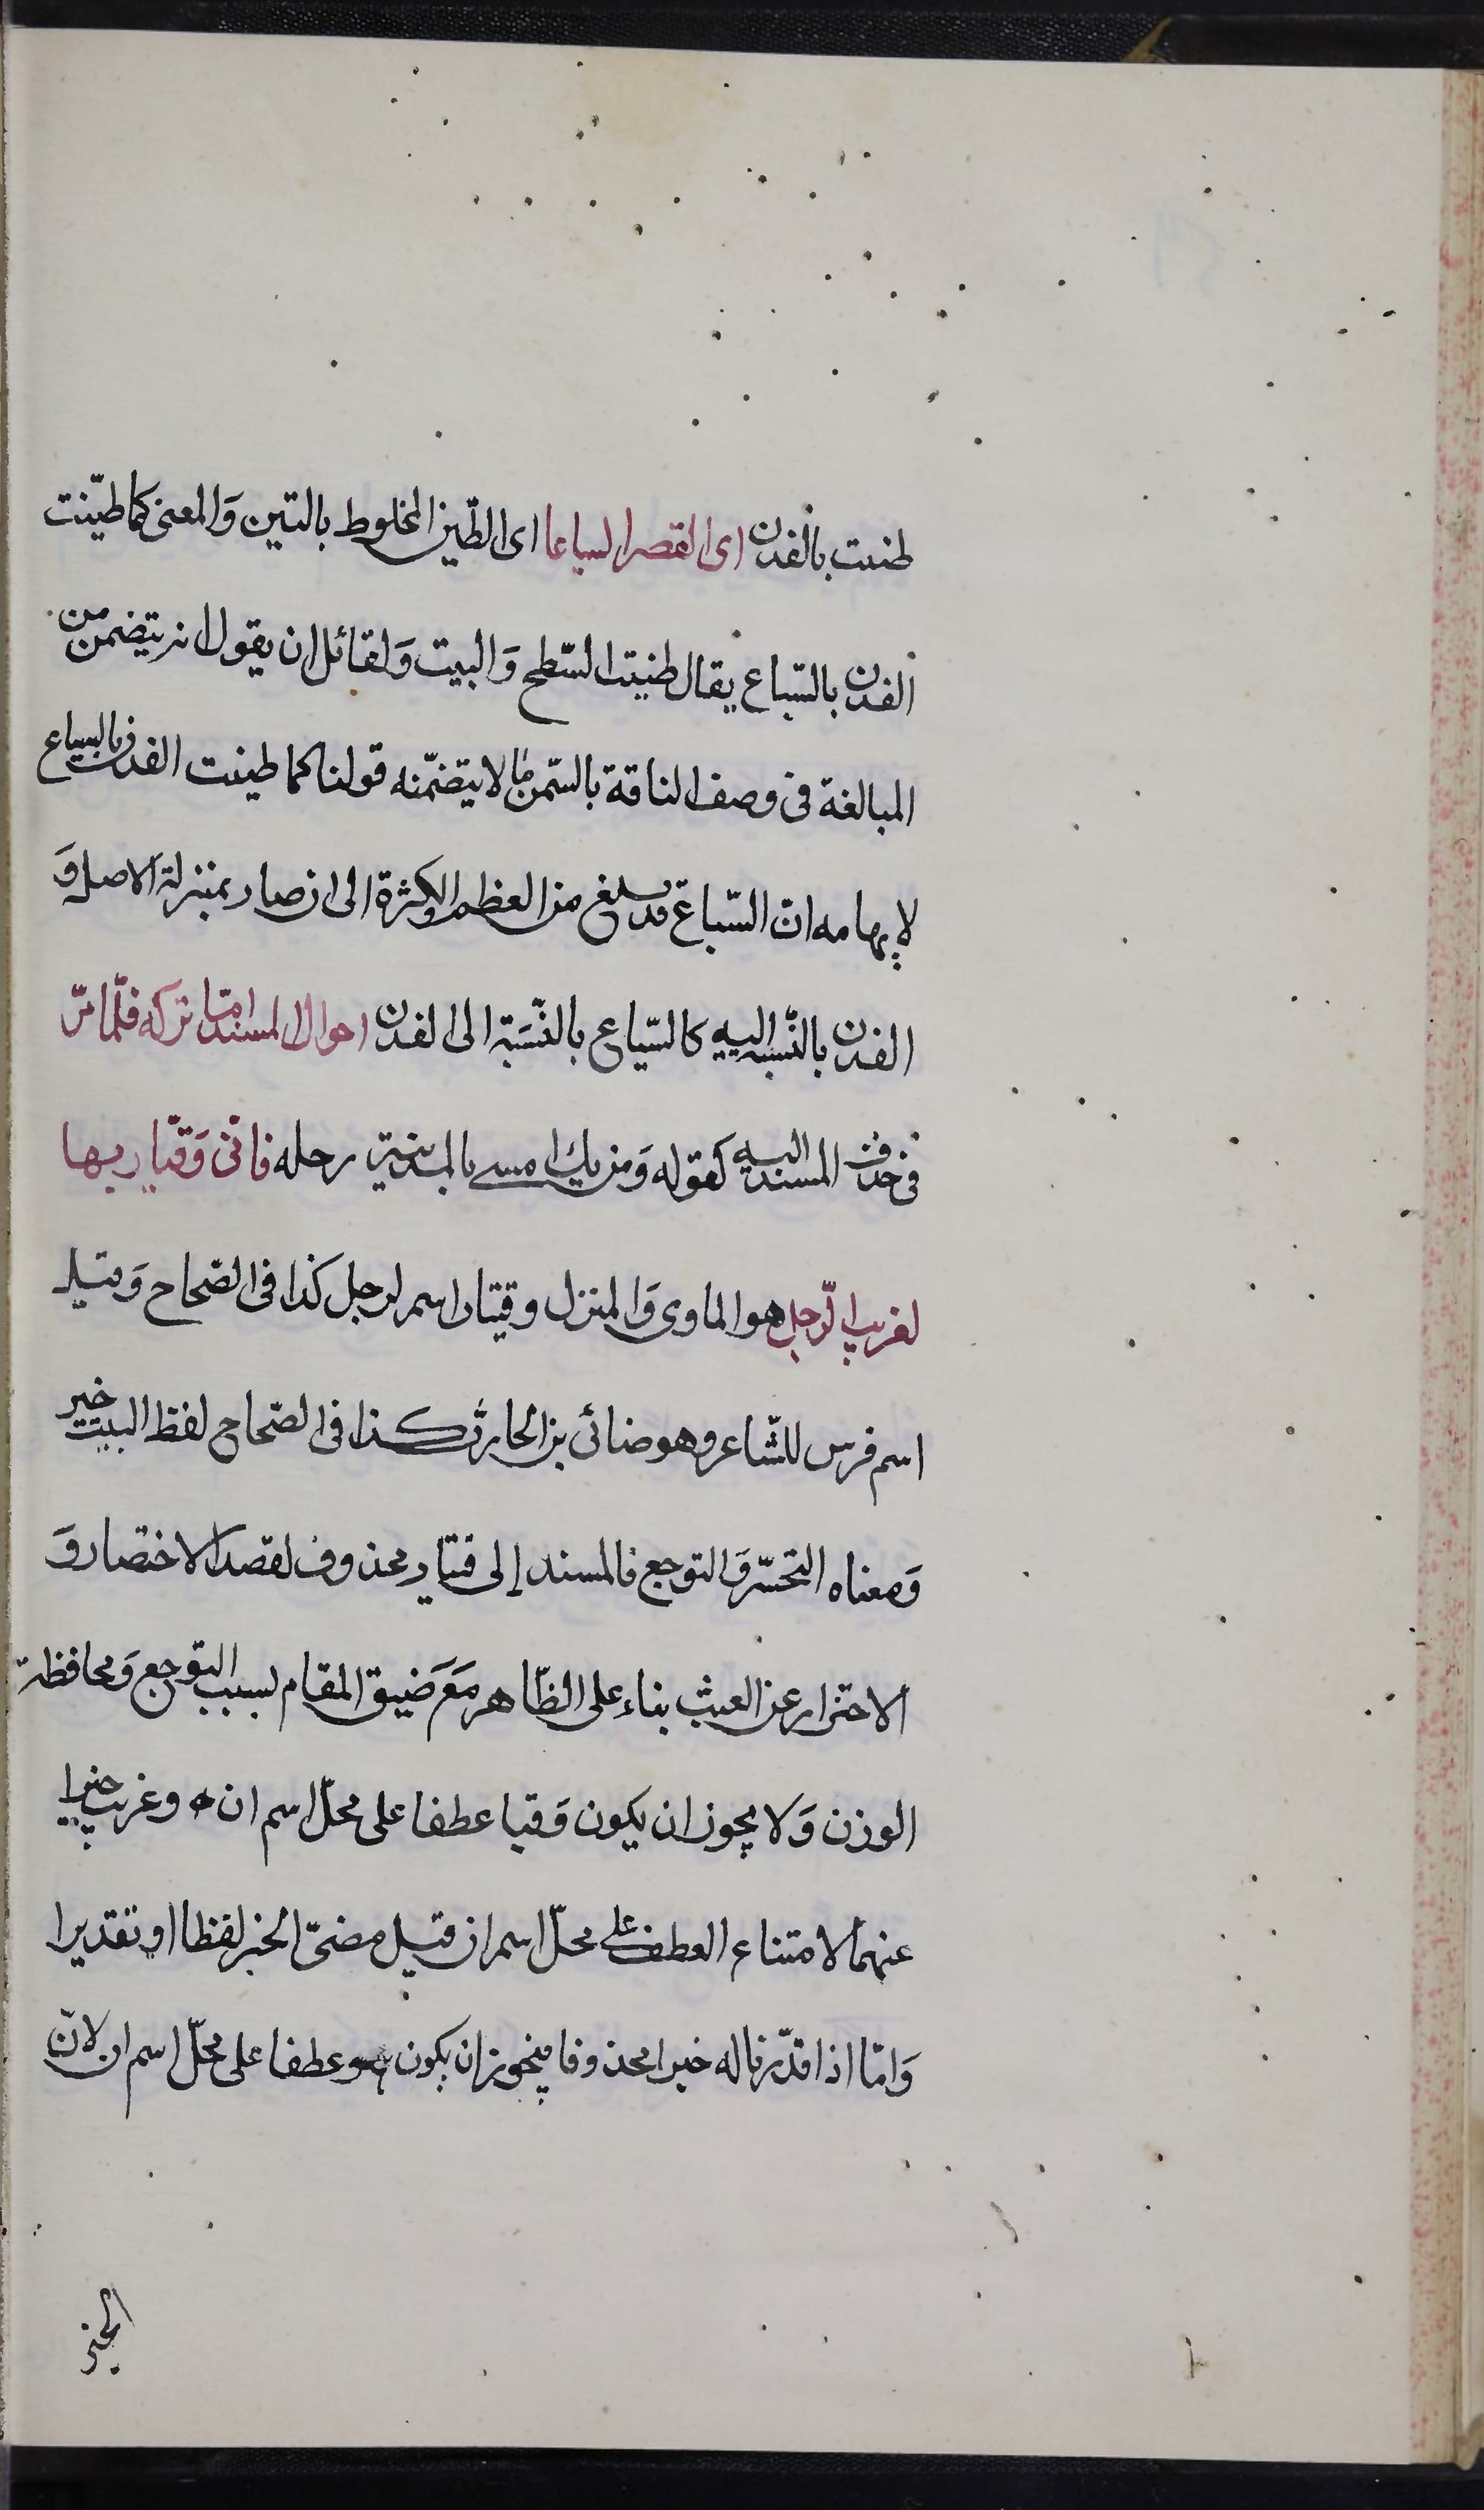 طنت بالفدن اى القصر السياعا اى الطّين المخلوط بالتين وَالمعنى كما طيّنت
الفدن بالسّياع يقال طنيت السّطح وَالبيت وَلقائل ان يقول انه يتضمن من
المبالغة فى وصف الناقة بالسّمن ما لا يتضمّنه قولنا كما طينت الفدن بالسياع
لايهامه انّ السّياع قد بلغ من العظم والكثرة الى ان صار بمنزلة الاصل وَ
الفدن بالنّسبه اليه كالسّياع بالنّسَبة الى الفدن احوال المسند امّا تركه فلما مرّ
فى حذف المسند اليه كقوله وَمن يك امسى بالمدينة رحله فانّى وَقيّار بها
لغريب الرّحل هو الماوى وَالمنزل وقيّار اسم لرجل كذا فى الصّحاح وَقيل
اسم فرس للشّاعر وهو ضائى بن الحارث كذا فى الصّحاح لفظ البيت خبر
وَمعناه التحسّر وَالتوجع فالمسند إلى قيّار محذوف لقصد الاختصار وَ
الاحتزار عن العبث بناء على الظّاهر مَعَ ضيق المقام لسبب التوجع وَمحافظة
الوزن وَلا يجوز ان يكون وَقيا عطفا على محلّ اسم ان ه وغريب خبرا
عنهما لامتناع العطف على محلّ اسم ان قبل مضىّ الخبر لفظا او تقديرا
وَامّا اذا قدّرنا له خبرا محذوفا فيجوز ان يكون هو عطفا على محلّ اسم ان لانّ
الخبر